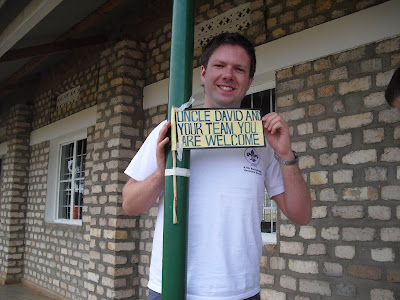 UNCLE DAVID AND
YOUR TEAM YOU
ARE WELCOME